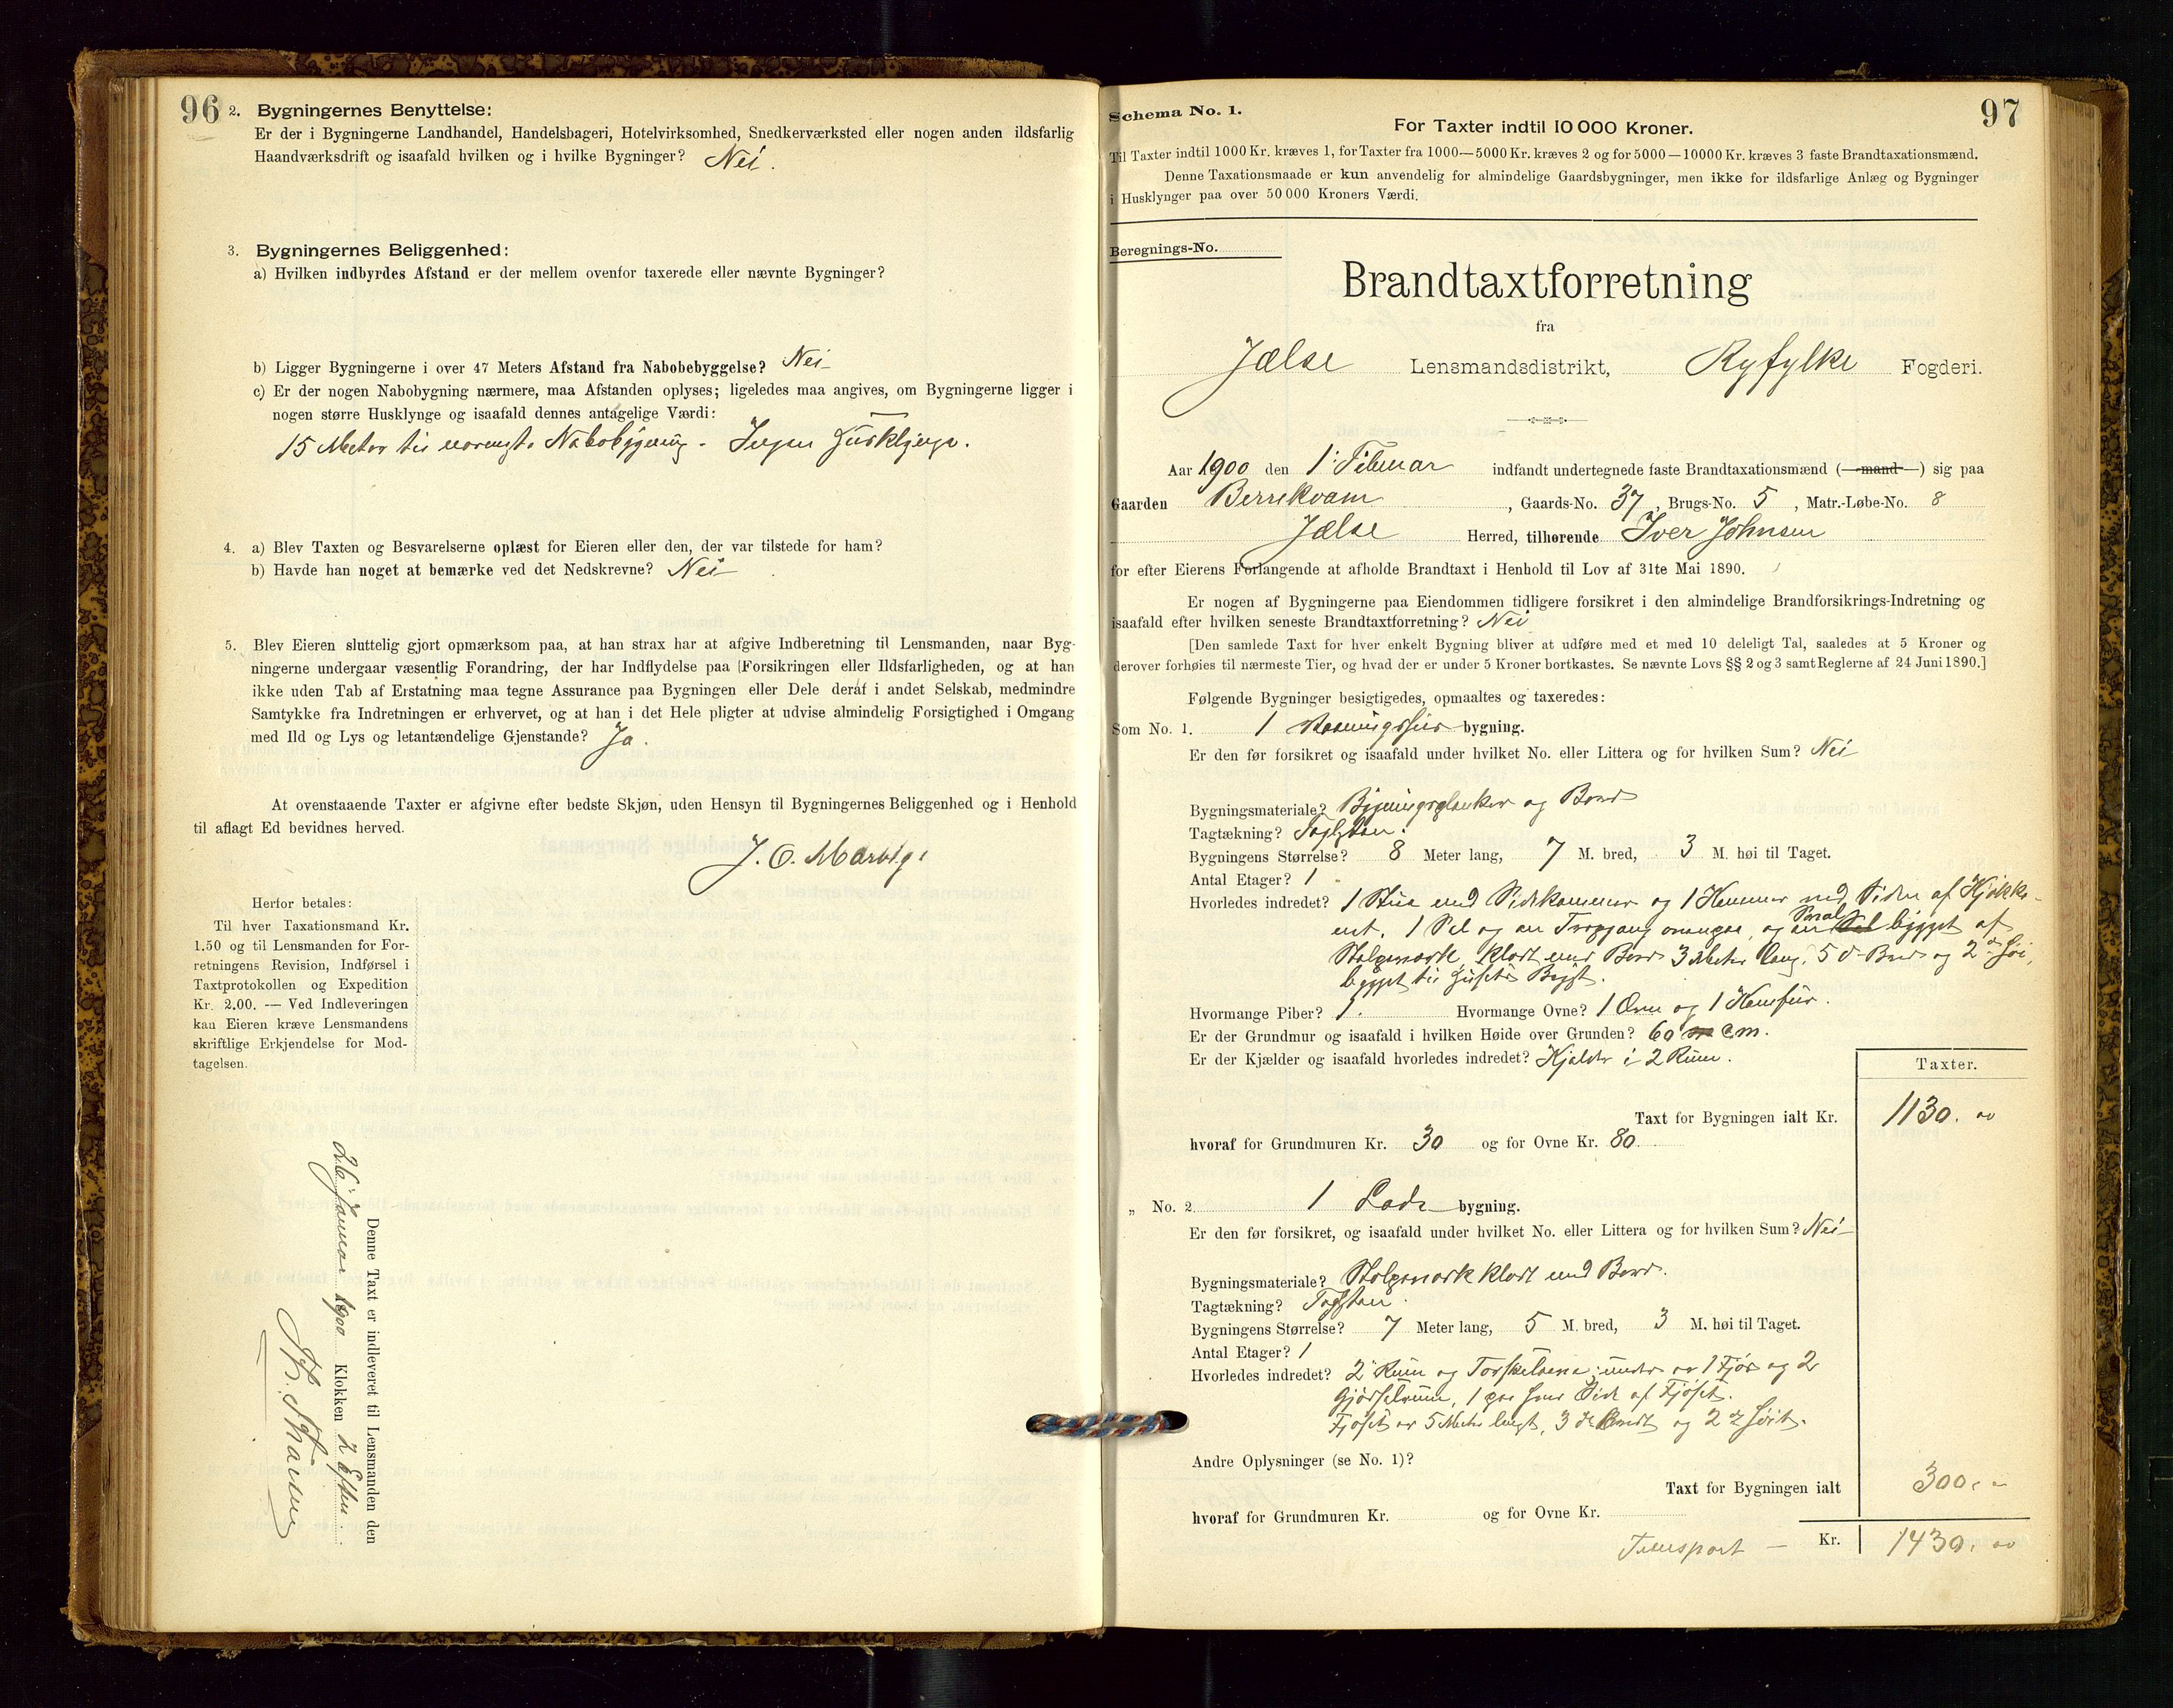 96
2. Bygningernes Benyttelse:
Er der i Bygningerne Landhandel, Handelsbageri, Hotelvirksomhed, Snedkerværksted eller nogen anden ildsfarlig
Haandværksdrift og isaafald hvilken og i hvilke Bygninger? Nei.
3. Bygningernes Beliggenhed:
a) Hvilken indbyrdes Afstand er der mellem ovenfor taxerede eller nævnte Bygninger?
b) Ligger Bygningerne i over 47 Meters Afstand fra Nabobebyggelse? Nei
c) Er der nogen Nabobygning nærmere, maa Afstanden oplyses; ligeledes maa angives, om Bygningerne ligger i
nogen større Husklynge og isaafald dennes antagelige Værdi:
15 Meter til nærmeste Nabobygning. Ingen Husklynge.
4. a) Blev Taxten og Besvarelserne oplæst for Eieren eller den, der var tilstede for ham?
b) Havde han noget at bemærke ved det Nedskrevne? Nei
5. Blev Eieren sluttelig gjort opmærksom paa, at han strax har at afgive Indberetning til Lensmanden, naar Byg-
ningerne undergaar væsentlig Forandring, der har Indflydelse paa Forsikringen eller Ildsfarligheden, og at han
ikke uden Tab af Erstatning maa tegne Assurance paa Bygningen eller Dele deraf i andet Selskab, medmindre
Samtykke fra Indretningen er erhvervet, og at han i det Hele pligter at udvise almindelig Forsigtighed i Omgang
med Ild og Lys og letantændelige Gjenstande? Ja.
At ovenstaaende Taxter er afgivne efter bedste Skjøn, uden Hensyn til Bygningernes Beliggenhed og i Henhold
til aflagt Ed bevidnes herved.
J. O.
Herfor betales:
Til hver Taxationsmand Kr.
1.50 og til Lensmanden for For-
retningens Revision, Indførsel i
Taxtprotokollen og Expedition
Kr. 2,00. — Ved Indleveringen
kan Eieren kræve Lensmandens
skriftlige Erkjendelse for Mod-
tagelsen.
Denne Taxt er indleveret til Lensmanden den
Januar 1900 Klokken 2 Efter
97
Schema No. 1.
For Taxter indtil 10 000 Kroner.
Til Taxter indtil 1000 Kr. kræves 1, for Taxter fra 1000—5000 Kr. kræves 2 og for 5000—10000 Kr. kræves 3 faste Brandtaxationsmænd.
Denne Taxationsmaade er kun anvendelig for almindelige Gaardsbygninger, men ikke for ildsfarlige Anlæg og Bygninger
i Husklynger paa over 50 000 Kroners Værdi.
Beregnings-No.
Brandtaxtforretning
fra
Jælse Lensmandsdistrikt, Ryfylke Fogderi.
Aar 1900 den 1. Februar indfandt undertegnede faste Brandtaxationsmænd (mand) sig paa
Gaarden Berrekvam, Gaards-No. 37, Brugs-No. 5, Matr.-Løbe-No. 8
Jælse Herred, tilhørende Iver Johnsen
for efter Eierens Forlangende at afholde Brandtaxt i Henhold til Lov af 31te Mai 1890.
Er nogen af Bygningerne paa Eiendommen tidligere forsikret i den almindelige Brandforsikrings-Indretning og
isaafald efter hvilken seneste Brandtaxtforretning? Nei
[Den samlede Taxt for hver enkelt Bygning bliver at udføre med et med 10 deleligt Tal, saaledes at 5 Kroner og
derover forhøies til nærmeste Tier, og hvad der er under 5 Kroner bortkastes. Se nævnte Lovs §§ 2 og 3 samt Reglerne af 24 Juni 1890.]
Følgende Bygninger besigtigedes, opmaaltes og taxeredes:
Som No. 1. 1 Vaaningshus bygning.
Er den før forsikret og isaafald under hvilket No. eller Littera og for hvilken Sum? Nei
Bygningsmateriale? Bygningsplanker og Bord
Tagtækning? Taglsten.
Bygningens Størrelse? 8 Meter lang, 7 M. bred, 3 M. høi til Taget.
Antal Etager? 1
Hvorledes indredet? 1 Stue med Sidekammer og 1 Kammer ved Siden af Kjøkke-
net. 1 Sal og en Trapgang ovenpaa, og en Sval bygget af
Stolpeværk, klædt med Bord 3 Meter lang, 5 d. Bred og 2 d. høi,
bygget til Husets Bagst.
Hvormange Piber? 1. Hvormange Ovne? 1 Ovn og 1 Komfur.
Er der Grundmur og isaafald i hvilken Høide over Grunden? 60 cm.
Er der Kjælder og isaafald hvorledes indredet? Kjelder i 2 Rum.
Taxter.
Taxt for Bygningen ialt Kr. 1130. 00
hvoraf for Grundmuren Kr. 30 og for Ovne Kr. 80
„ No. 2. 1 Lade bygning.
Er den før forsikret, og isaafald under hvilket No. eller Littera og for hvilken Sum? Nei
Bygningsmateriale? Stolpeværk klædt med Bord.
Tagtækning? Taglsten.
Bygningens Størrelse? 7 Meter lang, 5 M. bred, 3 M. høi til Taget.
Antal Etager? 1
Hvorledes indredet? 2 Rum og Torskelaave; under er 1 Fjøs og 2
Gjødselrum, 1 paa hver Side af Fjøset.
Fjøset er 5 Meter langt, 3 d. bredt og 2 d. høit.
Andre Oplysninger (se No. 1)?
Taxt for Bygningen ialt 300. -
hvoraf for Grundmuren Kr. og for Ovne Kr.
Transport — Kr. 1430. 00